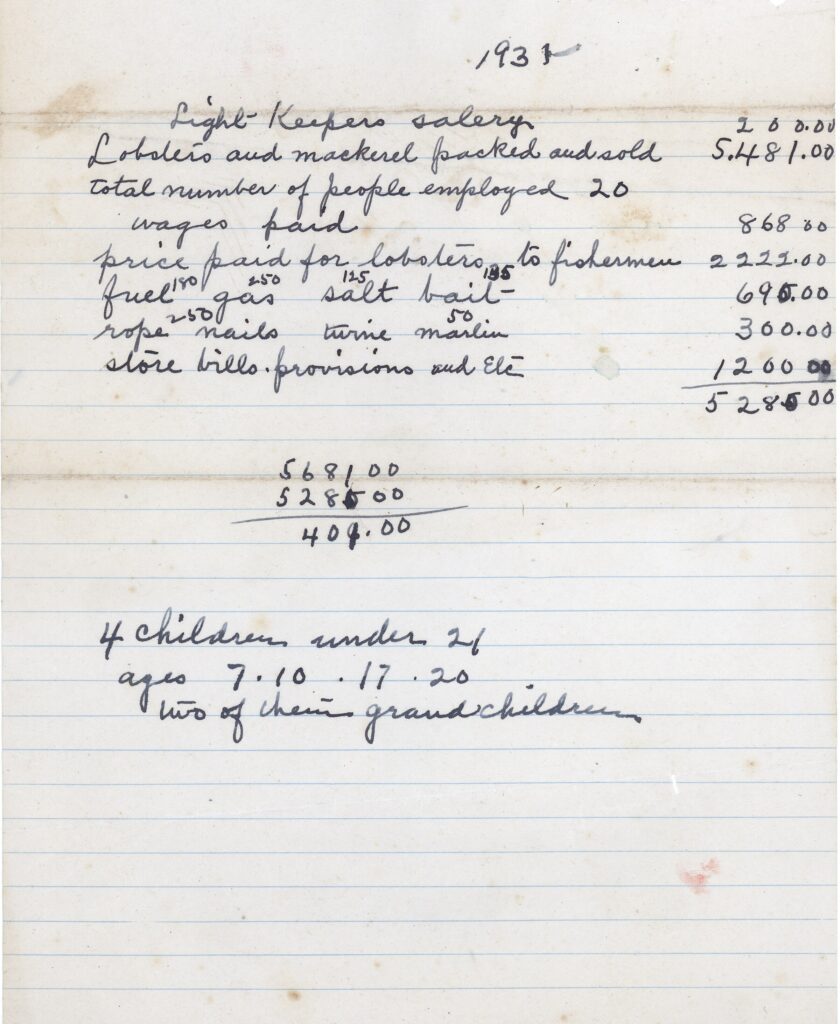 1931
Light Keepers salery 200.00
Lobsters and mackerel packed and sold 5.481.00
total number of people employed 20
wages paid 868 00
price paid for lobsters to fishermen 2222.00
180 250 125 135
fuel gas salt bait 690.00
250 50
rope nails twine marlin 300.00
store bills. provisions and Etc 1200 00
5280 00
5681 00
5280 00
401.00
4 children under 21
ages 7.10 .17 .20
two of them grandchildren